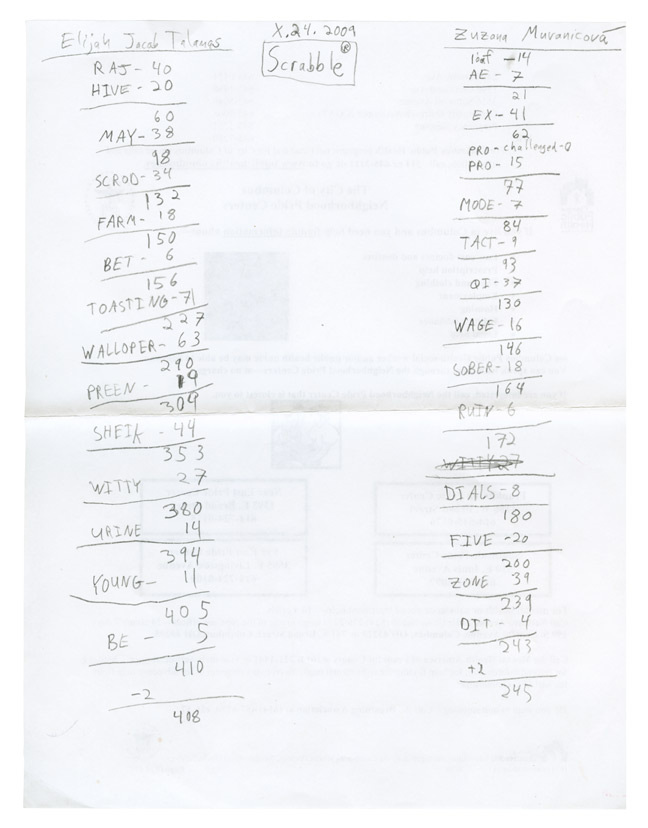 X.24.2009
Scrabble®
Elijah Jacob Talamas
RAJ- 40
HIVE- 20
60
MAY- 38
98
SCROD- 34
132
FARM- 18
150
BET- 6
156
TOASTING-71
227
WALLOPER- 63
290
PREEN - 19
309
SHEIK - 44
353
WITTY 27
380
URINE 14
394
YOUNG- 11
405
BE - 5
410
-2
408
Zuzana Muranicová
loaf -14
AE- 7
21
EX- 41
62
PRO-challenged-0
PRO- 15
77
MODE- 7
84
TACT- 9
93
QI-37
130
WAGE-16
146
SOBER-18
164
RUIN-6
172
WITTY 27
DIALS-8
180
FIVE -20
200
ZONE 39
239
DIT- 4
243
+2
245